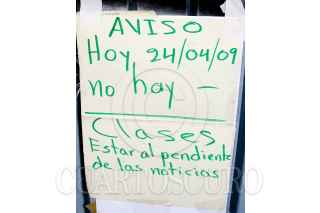 AVISO
Hoy 24/04/09
no hay -
Clases
Estar al pendiente
de las noticias
CUARTOSCURO